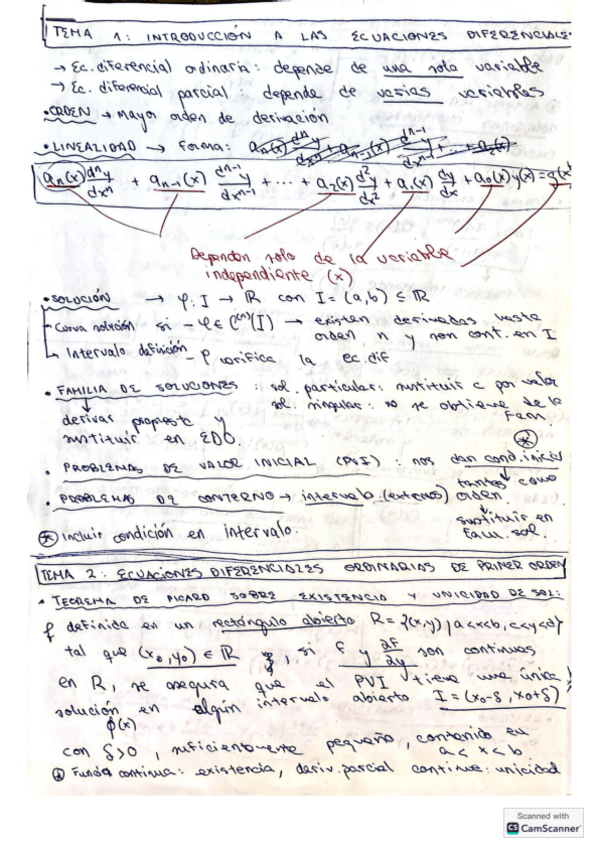 TEMA 1: INTRODUCCIÓN A LAS ECUACIONES DIFERENCIALE
→ Ec. diferencial ordinaria: depende de una sola variable
→ Ec. diferencial parcial: depende de varias variables
• ORDEN → Mayor orden de derivación
• LINEALIDAD → Forma:
aₙ(x) dⁿy/dxⁿ + aₙ₋₁(x) dⁿ⁻¹y/dxⁿ⁻¹ + ... + a₂(x) d²y/dx² + a₁(x) dy/dx + a₀(x)y(x) = g(x
Dependen solo de la variable
independiente (x)
• SOLUCIÓN → φ: I → ℝ con I = (a,b) ⊆ ℝ
Curva solución si - φ ∈ C⁽ⁿ⁾(I) → existen derivadas hasta
orden n y son cont. en I
Intervalo definición - φ verifica la ec. dif
• FAMILIA DE SOLUCIONES: sol. particular: sustituir c por valor
sol. singular: no se obtiene de la
fam.
derivar propuesta y
sustituir en EDO.
• PROBLEMAS DE VALOR INICIAL (PVI): nos dan cond. inicial
tantas como
orden
• PROBLEMAS DE CONTORNO → intervalo (extremos)
sustituir en
fam. sol.
⊛ Incluir condición en intervalo.
TEMA 2: ECUACIONES DIFERENCIALES ORDINARIAS DE PRIMER ORDEN
• TEOREMA DE PICARD SOBRE EXISTENCIA Y UNICIDAD DE SOL:
f definida en un rectángulo abierto R = {(x,y) / a<x<b, c<y<d}
tal que (x₀,y₀) ∈ ℝ, si f y ∂f/∂y son continuas
en R, se asegura que el PVI tiene una única
solución en algún intervalo abierto I = (x₀-δ, x₀+δ)
φ(x)
con δ>0, suficientemente pequeño, contenido en
a < x < b
⊛ Función continua: existencia, deriv. parcial continua: unicidad
Scanned with
CS CamScanner